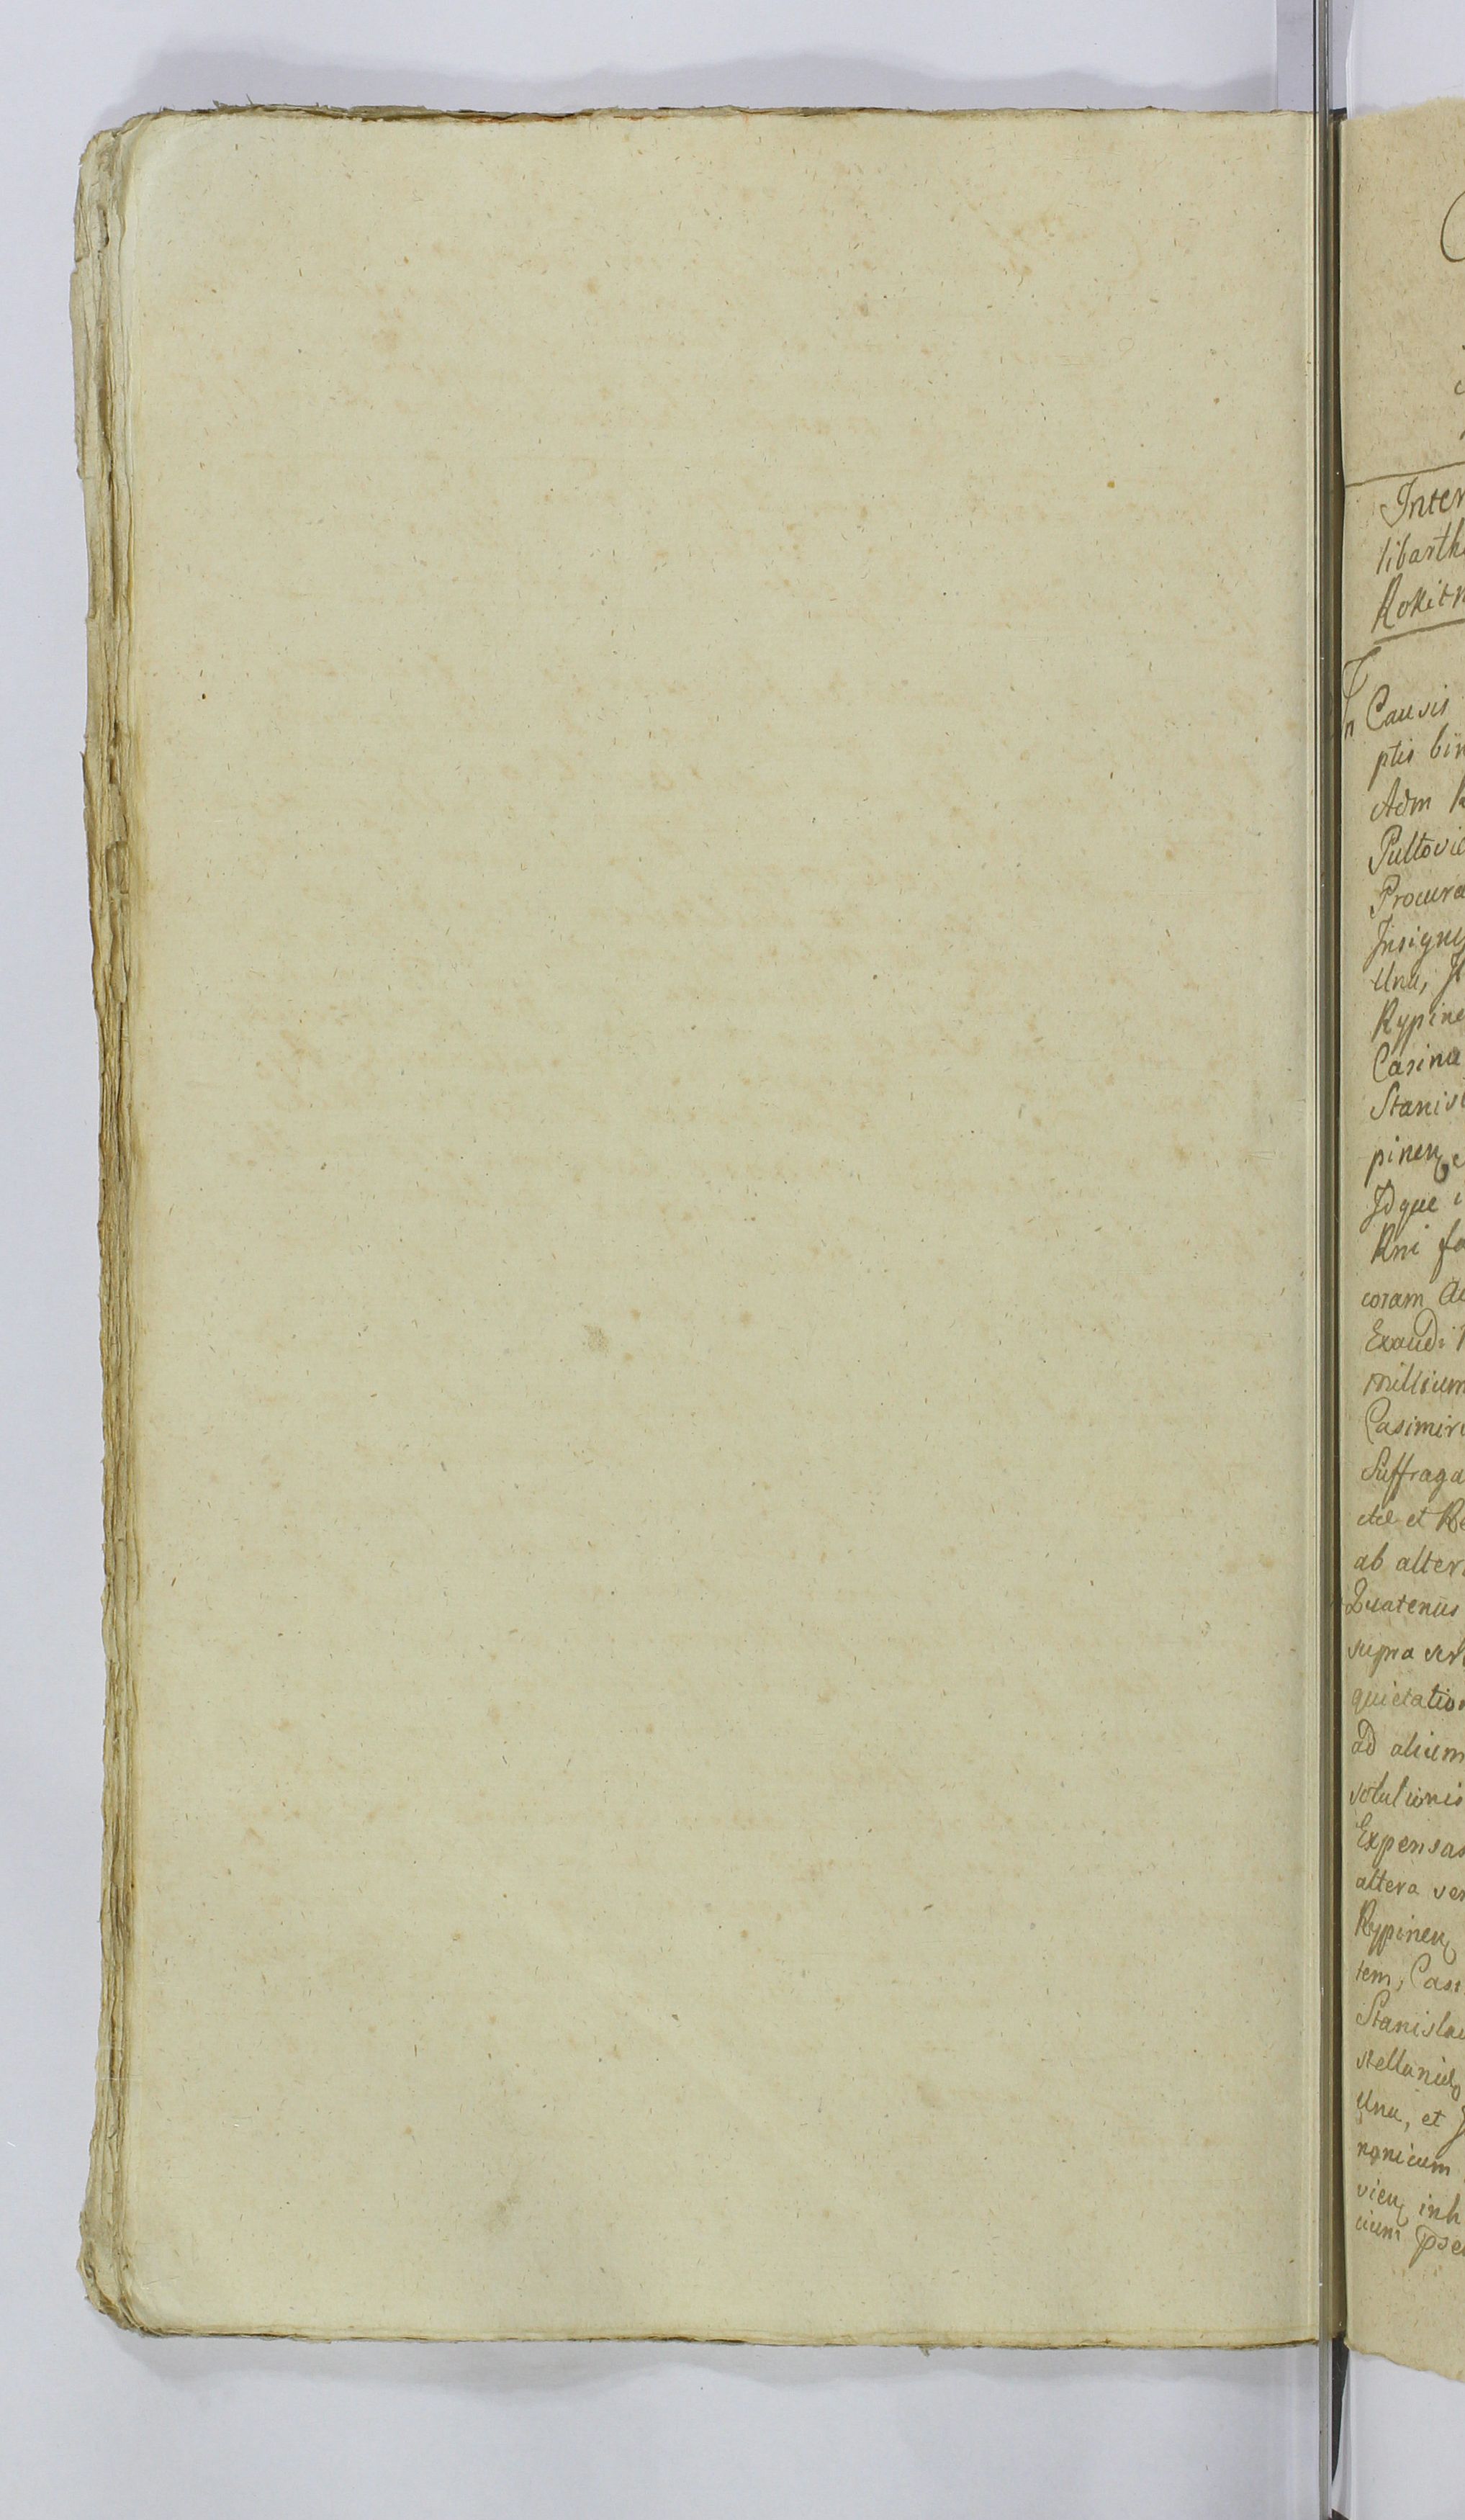 Inter
libarth
Rokitn
In Causis
ptis bin
Adm R
Pultovie
Procura
Insigni
Una,
Rypine
Casim
Stanis
pinen
Idque
Rni fa
coram
Exaudi
millium
Casimir
Suffraga
et Re
ab alter
Quatenus
supra scri
quietation
ad alium
solutionis
Expensas
altera ver
Rypinen
tem, Casi
Stanislau
stellanid
Una, et
nonicum
vien inh
cium